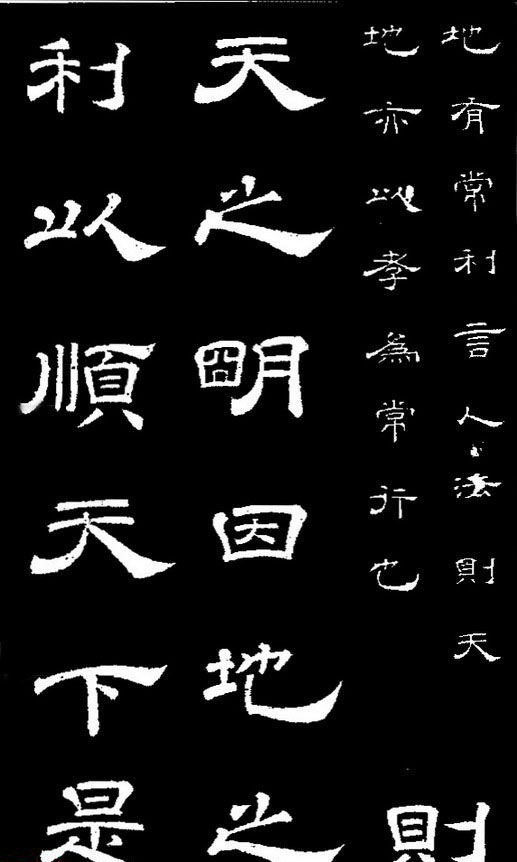 地有常利言人法則天
地亦以孝為常行也
則
天之明因地之
利以順天下是